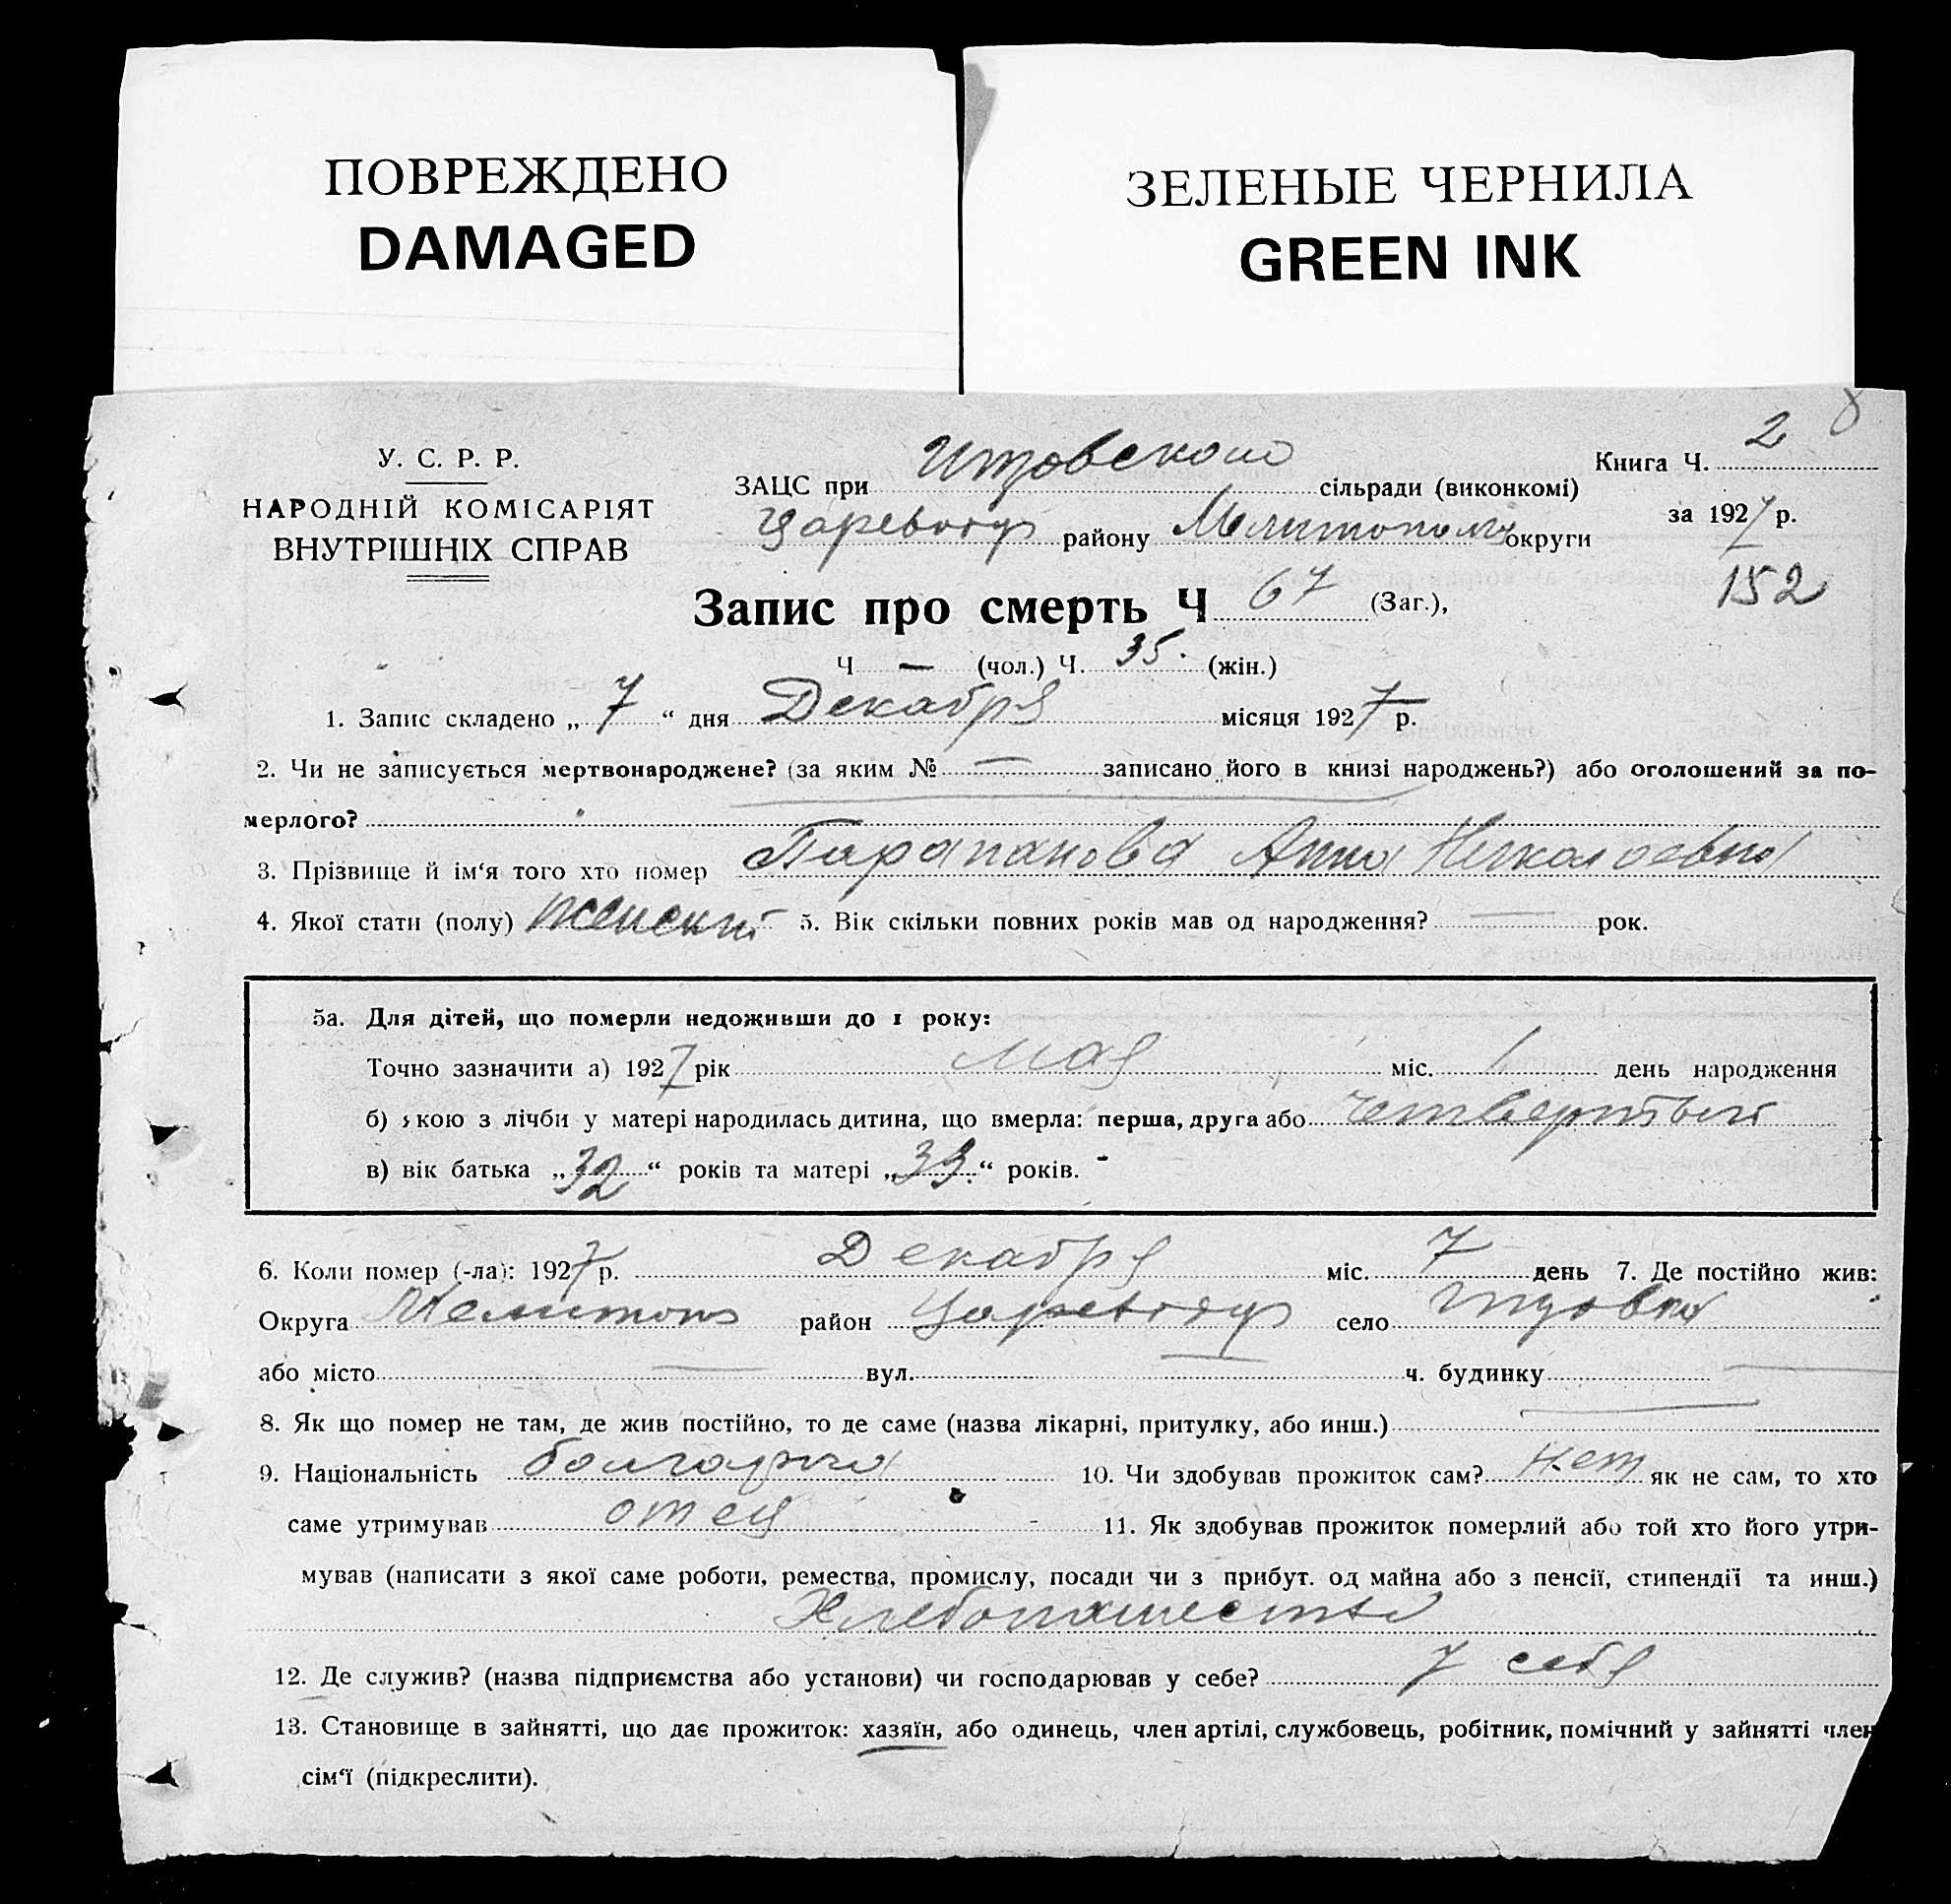 ПОВРЕЖДЕНО
DAMAGED
ЗЕЛЕНЫЕ ЧЕРНИЛА
GREEN INK
У. С. Р. Р.
НАРОДНІЙ КОМІСАРІЯТ
ВНУТРІШНІХ СПРАВ
ЗАЦС при сільради (виконкомі)
району округи
Книга Ч. 2
за 1927 р.
152
Запис про смерть Ч 67 (Заг.),
Ч — (чол.) Ч. 35. (жін.)
1. Запис складено „ 7 “ дня Декабря місяця 1927 р.
2. Чи не записується мертвонароджене? (за яким № — записано його в книзі народжень?) або оголошений за по-
мерлого?
3. Прізвище й ім‘я того хто помер Парапанова Анна Николаевна
4. Якої стати (полу) Женский 5. Вік скільки повних років мав од народження? — рок.
5а. Для дітей, що померли недоживши до 1 року:
Точно зазначити а) 1927 рік мая міс. 1 день народження
б) якою з лічби у матері народилась дитина, що вмерла: перша, друга або четвертый
в) вік батька „32“ років та матері „33“ років.
6. Коли помер (-ла): 1927 р. Декабря міс. 7 день 7. Де постійно жив:
Округа Мелитоп район Царевод село
або місто — вул. — ч. будинку —
8. Як що помер не там, де жив постійно, то де саме (назва лікарні, притулку, або инш.) —
9. Національність болгарка 10. Чи здобував прожиток сам? нет як не сам, то хто
саме утримував отец 11. Як здобував прожиток померлий або той хто його утри-
мував (написати з якої саме роботи, ремества, промислу, посади чи з прибут. од майна або з пенсії, стипендії та инш.)
Хлебопашество
12. Де служив? (назва підприємства або установи) чи господарював у себе? У себя
13. Становище в зайнятті, що дає прожиток: хазяїн, або одинець, член артілі, службовець, робітник, помічний у зайнятті член
сім‘ї (підкреслити).